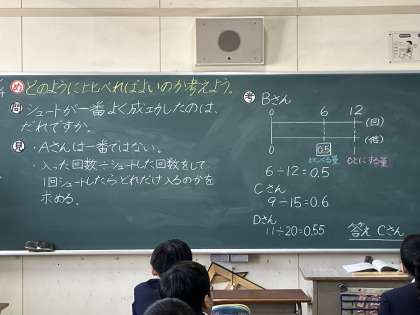 め どのように比べればよいのか考えよう。
問 シュートが一番よく成功したのは、
だれですか。
見 ・Aさんは一番ではない。
・入った回数÷シュートした回数をして
1回シュートしたらどれだけ入るのかを
求める。
考 Bさん
0 6 12
(回)
(倍)
0 0.5 1
比べる量 もとにする量
6÷12=0.5
Cさん
9÷15=0.6
Dさん
11÷20=0.55
答え Cさん